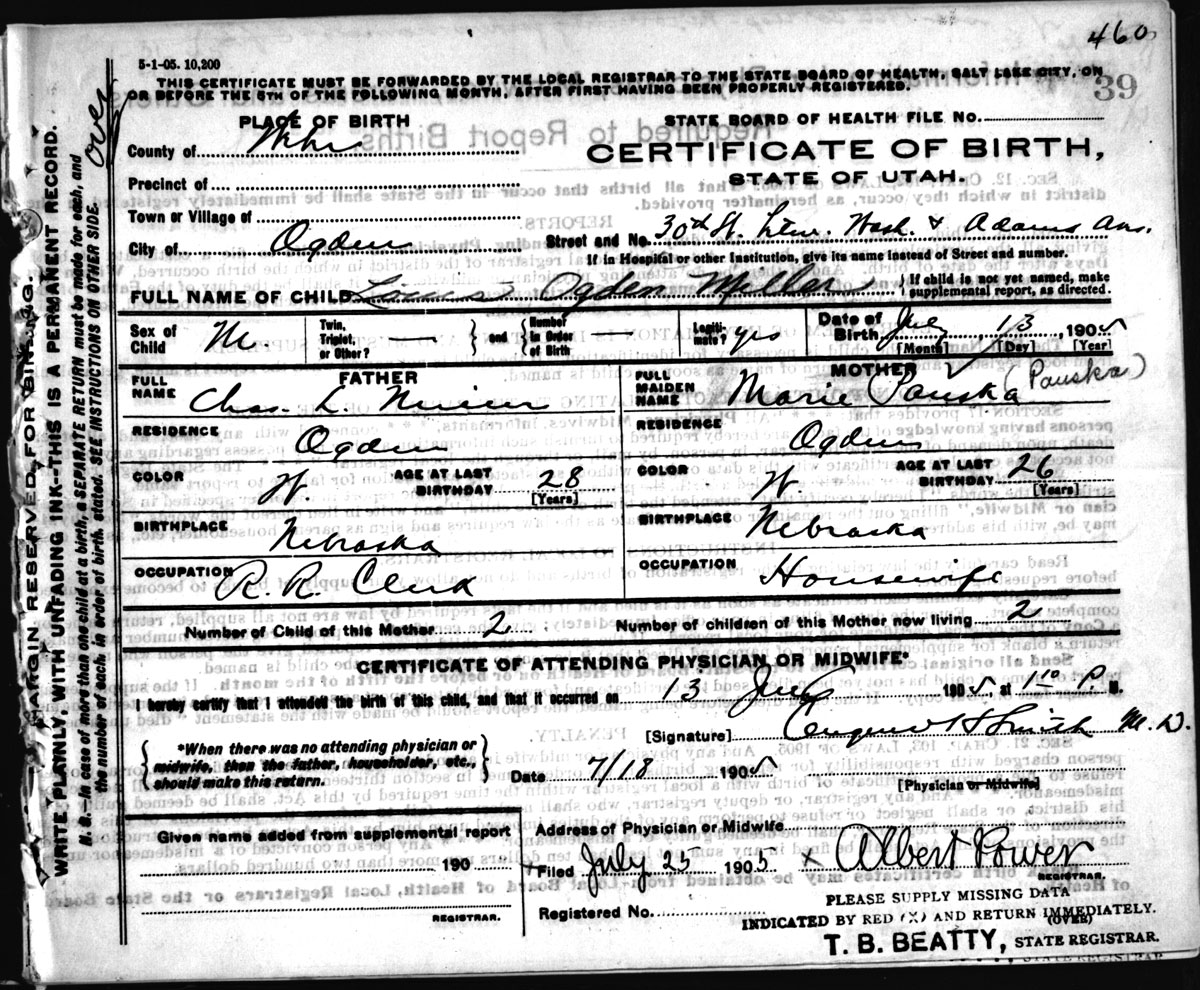 460
39
5-1-05. 10,200
THIS CERTIFICATE MUST BE FORWARDED BY THE LOCAL REGISTRAR TO THE STATE BOARD OF HEALTH, SALT LAKE CITY, ON
OR BEFORE THE 5TH OF THE FOLLOWING MONTH, AFTER FIRST HAVING BEEN PROPERLY REGISTERED.
MARGIN RESERVED FOR BINDING.
WRITE PLAINLY, WITH UNFADING INK--THIS IS A PERMANENT RECORD.
N. B.--In case of more than one child at a birth, a SEPARATE RETURN must be made for each, and
the number of each, in order of birth, stated. SEE INSTRUCTIONS ON OTHER SIDE.
Over
PLACE OF BIRTH
STATE BOARD OF HEALTH FILE No.
County of Weber
CERTIFICATE OF BIRTH,
STATE OF UTAH.
Precinct of
Town or Village of
City of Ogden Street and No. 30th St. betw. Wash. & Adams Aves.
If in Hospital or other Institution, give its name instead of Street and number.
FULL NAME OF CHILD Louis Ogden Miller { If child is not yet named, make
supplemental report, as directed.
Sex of Child M Twin, Triplet, or Other? — } and { Number in Order of Birth — Legiti- mate? yes Date of Birth July 13, 1905
[Month] [Day] [Year]
FATHER MOTHER
FULL NAME Chas. L. FULL MAIDEN NAME Marie Pauska (Pauska)
RESIDENCE Ogden RESIDENCE Ogden
COLOR W AGE AT LAST BIRTHDAY 28 [Years] COLOR W AGE AT LAST BIRTHDAY 26 [Years]
BIRTHPLACE Nebraska BIRTHPLACE Nebraska
OCCUPATION R. R. Clerk OCCUPATION Housewife
Number of Child of this Mother 2 Number of children of this Mother now living 2
CERTIFICATE OF ATTENDING PHYSICIAN OR MIDWIFE*
I hereby certify that I attended the birth of this child, and that it occurred on 13 July 1905, at 1 10 P. M.
[Signature] Eugene H Smith M. D.
{ *When there was no attending physician or
midwife, then the father, householder, etc.,
should make this return. }
Date 7/18 1905
[Physician or Midwife]
Given name added from supplemental report
190
REGISTRAR.
Address of Physician or Midwife
x Filed July 25 1905 x Albert Power
REGISTRAR.
Registered No.
PLEASE SUPPLY MISSING DATA
INDICATED BY RED (X) AND RETURN IMMEDIATELY.
(OVER)
T. B. BEATTY, STATE REGISTRAR.